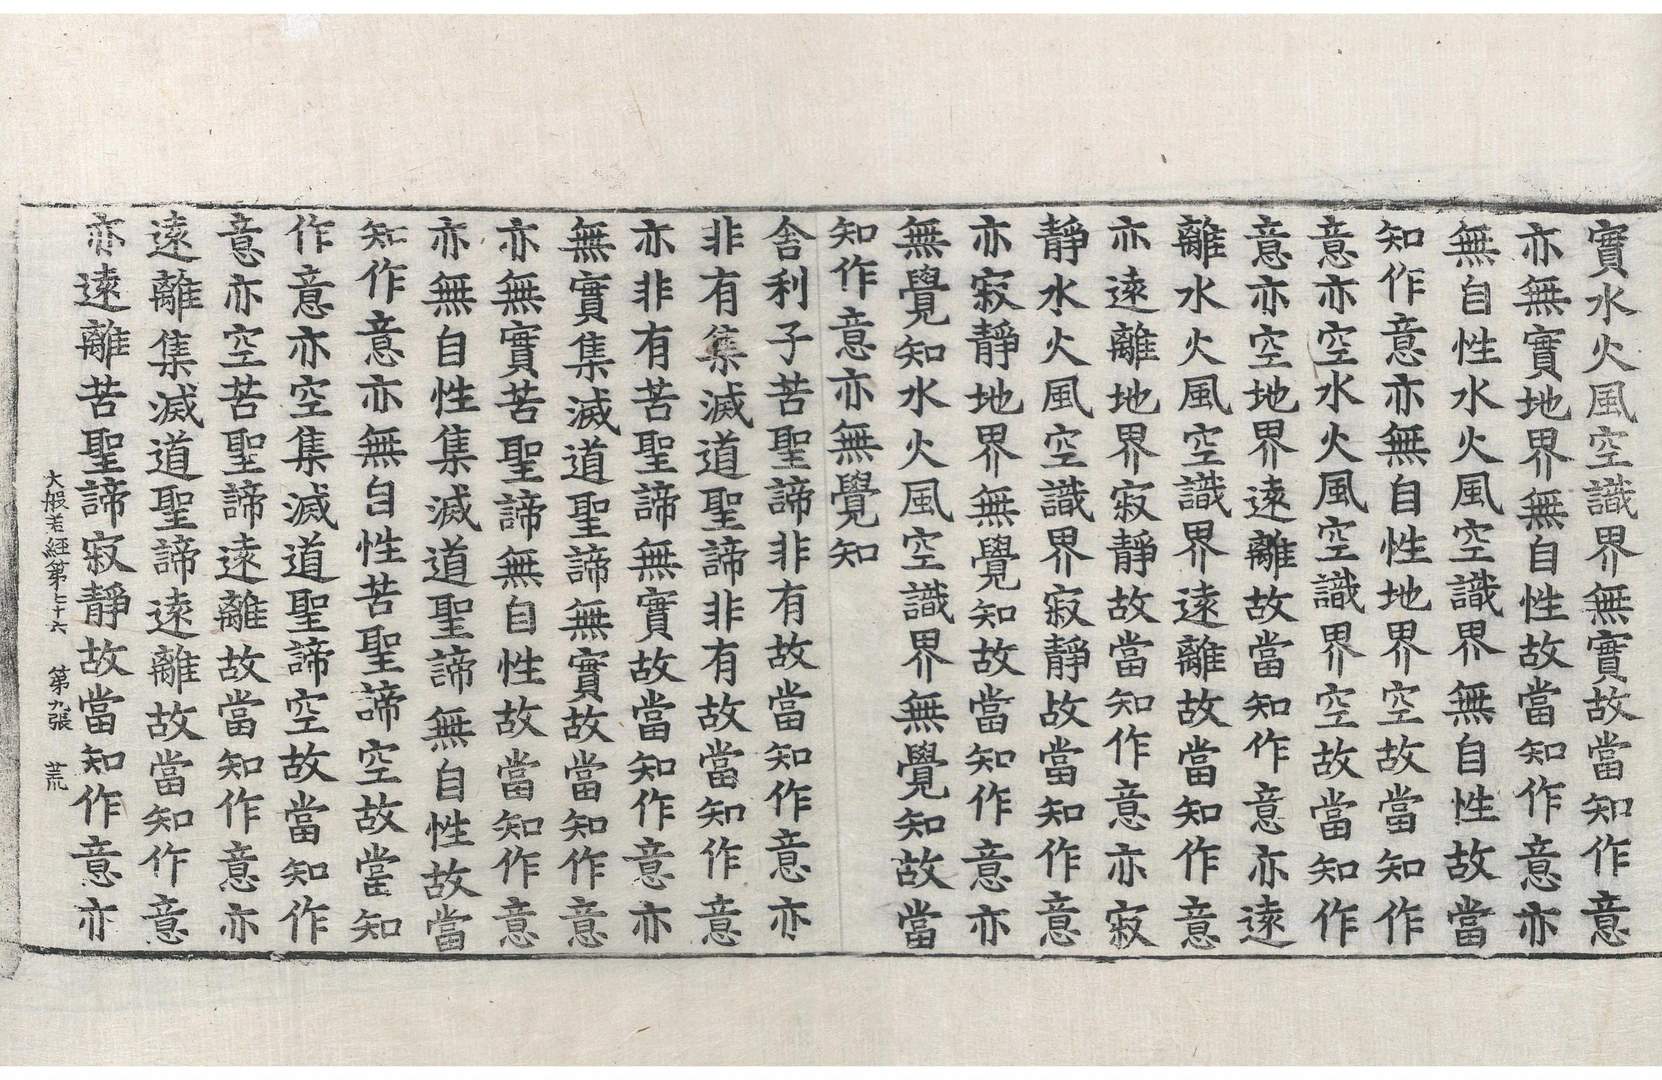 實水火風空識界無實故當知作意
亦無實地界無自性故當知作意亦
無自性水火風空識界無自性故當
知作意亦無自性地界空故當知作
意亦空水火風空識界空故當知作
意亦空地界遠離故當知作意亦遠
離水火風空識界遠離故當知作意
亦遠離地界寂靜故當知作意亦寂
靜水火風空識界寂靜故當知作意
亦寂靜地界無覺知故當知作意亦
無覺知水火風空識界無覺知故當
知作意亦無覺知
舍利子苦聖諦非有故當知作意亦
非有集滅道聖諦非有故當知作意
亦非有苦聖諦無實故當知作意亦
無實集滅道聖諦無實故當知作意
亦無實苦聖諦無自性故當知作意
亦無自性集滅道聖諦無自性故當
知作意亦無自性苦聖諦空故當知
作意亦空集滅道聖諦空故當知作
意亦空苦聖諦遠離故當知作意亦
遠離集滅道聖諦遠離故當知作意
亦遠離苦聖諦寂靜故當知作意亦
大般若經第七十六 第九張 荒